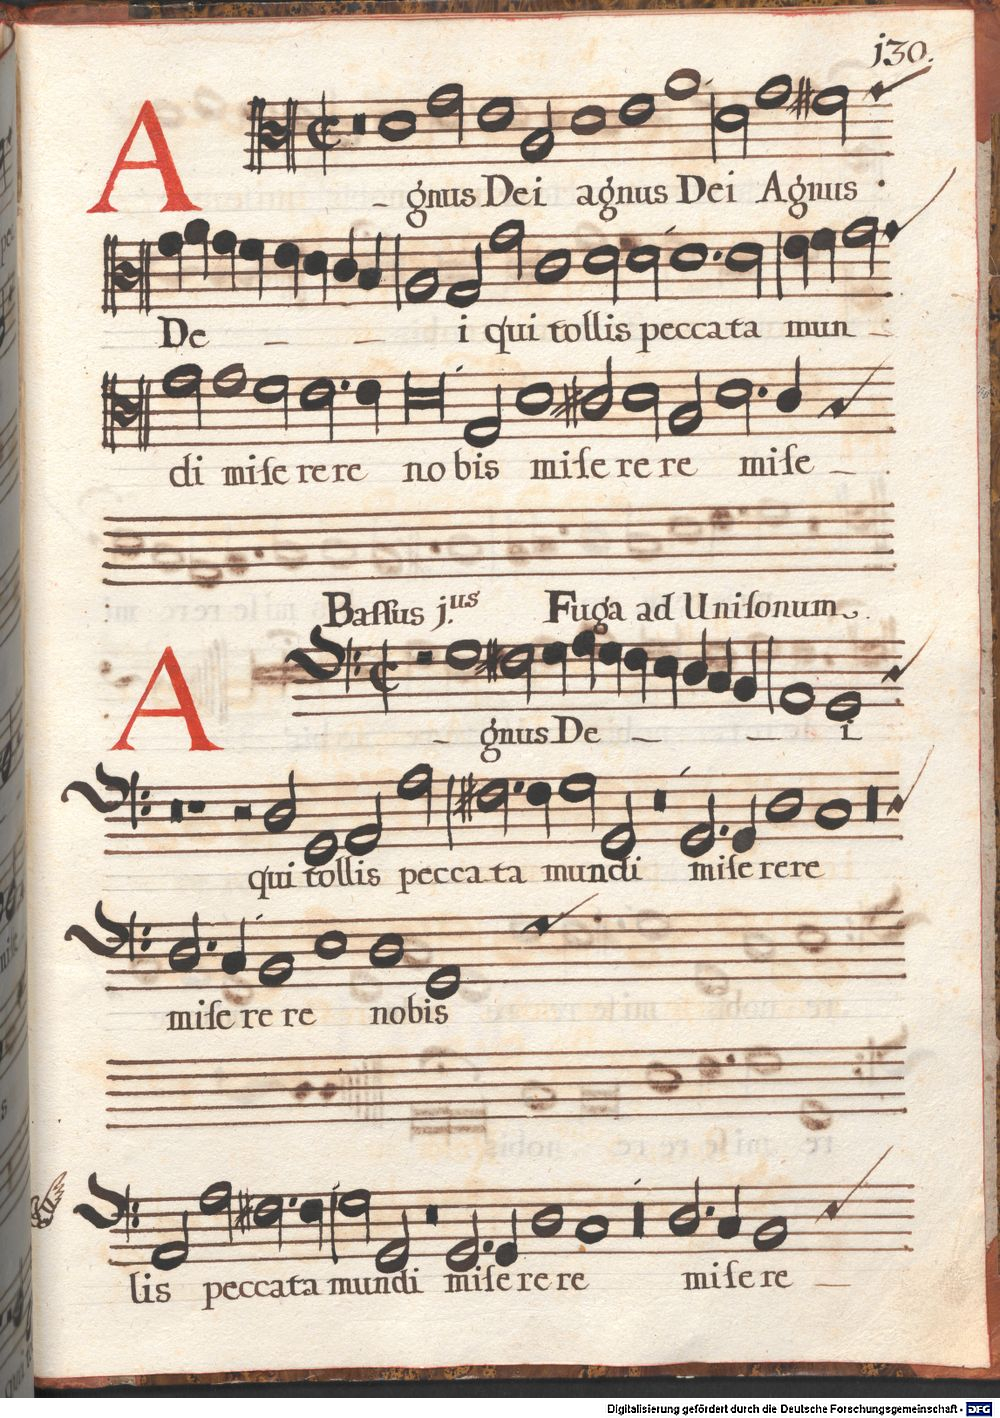 130.
A - gnus Dei agnus Dei Agnus
De - - i qui tollis peccata mun -
di miſe re re no bis miſe re re miſe -
Baſſus j.us Fuga ad Uniſonum.
A - gnus De - - i
qui tollis pecca ta mundi miſe rere
miſe re re nobis
lis peccata mundi miſe re re miſe re -
Digitalisierung gefördert durch die Deutsche Forschungsgemeinschaft - DFG